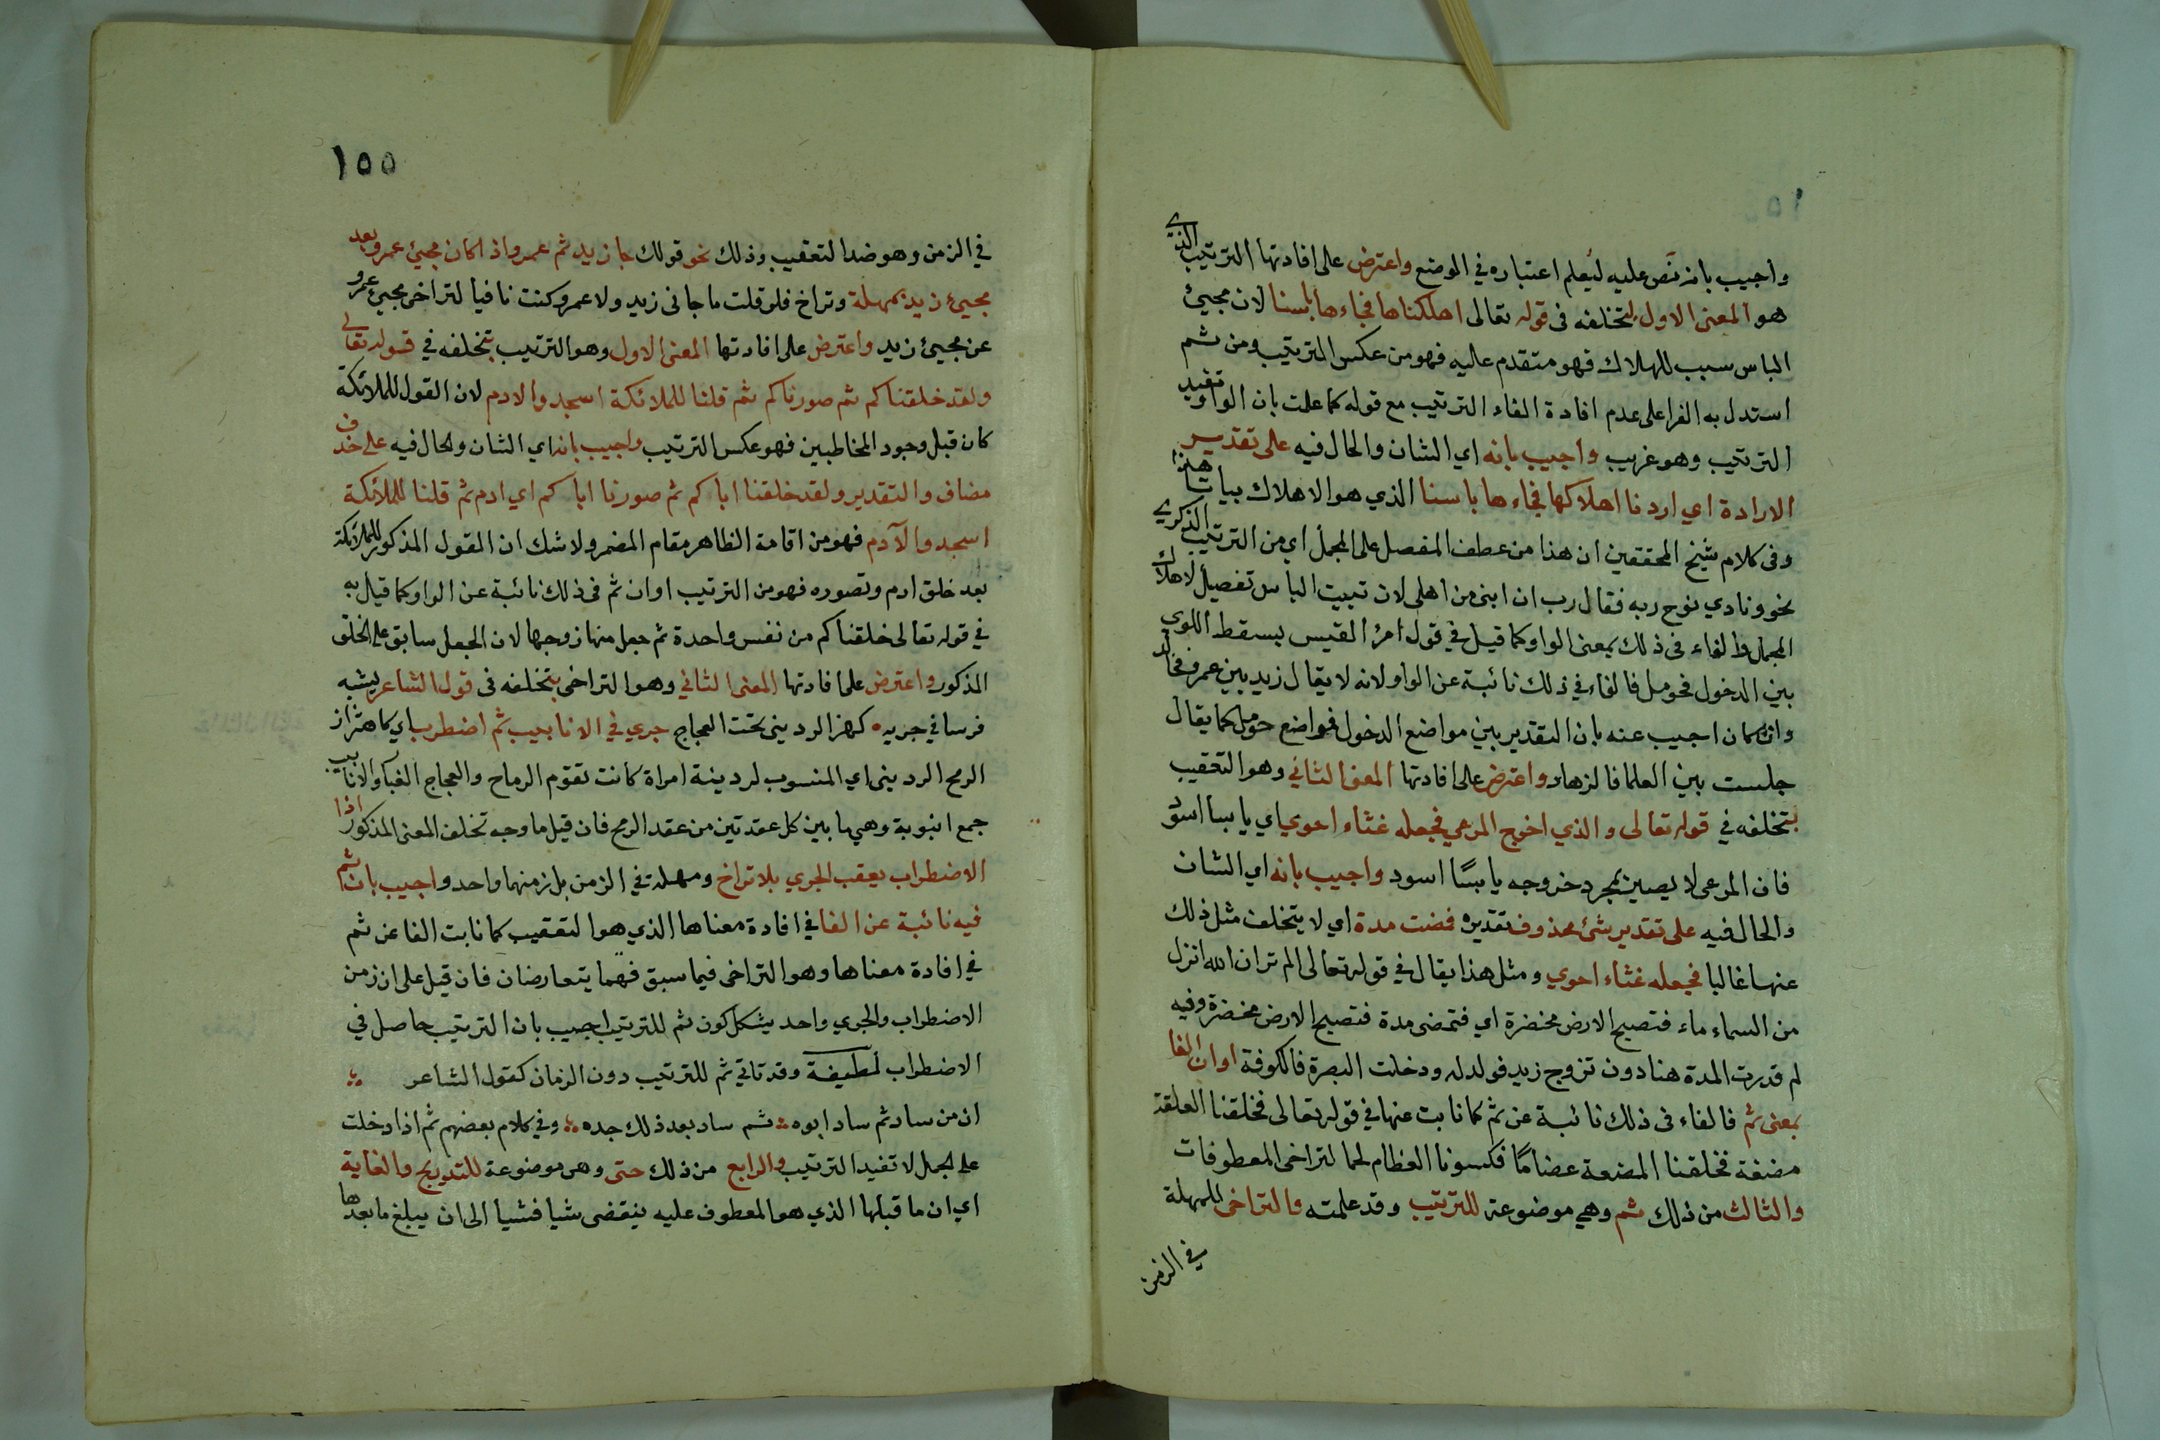 واجيب بانه نص عليه ليعلم اعتباره في الوضع واعترض على افادتها الترتيب الذي
هو المعنى الاول لتخلفه في قوله تعالى اهلكناها فجاءها باسنا لان مجيئ
الباس سبب للهلاك فهو متقدم عاليه فهو من عكس الترتيب ومن ثم
استدل به الفرا على عدم افادة الفاء الترتيب مع قوله كما علمت بان الواو تفيد
الترتيب وهو غريب واجيب بانه اي الشان والحال فيه على تقدير
الارادة اي اردنا اهلاكها فجاءها باسنا الذي هو الاهلاك بياتا هذا
وفي كلام شيخ المحققين ان هذا من عطف المفصل على المجمل اي من الترتيب الذكري
نحو ونادي نوح ربه فقال رب ان ابنى من اهلى لان تبييت الباس تفصيل لاهلاك
المجمل والفاء في ذلك بمعنى الواو كما قيل في قول امرؤ القيس بسقط اللوي
بين الدخول فحومل فالفاء في ذلك نائبة عن الواو لانه لا يقال زيد بين عمرو فخالد
وان كان اجيب عنه بان التقدير بين مواضع الدخول فمواضع حومل كما يقال
جلست بين العلما فالزهاد واعترض على افادتها المعنى الثاني وهو التعقيب
بتخلفه في قوله تعالى والذي اخرج المرعي فجعله غثاء احوي اي يابسا اسود
فان المرعى لا يصير بمجرد خروجه يابسًا اسود واجيب بانه اي الشان
والحال فيه على تقدير شئ محذوف تقديره فمضت مدة اي لا يتخلف مثل ذلك
عنها غالبا فجعله غثاء احوي ومثل هذا يقال في قوله تعالى الم تر ان الله انزل
من السماء ماء فتصبح الارض مخضرة اي فتمضى مدة فتصبح الارض مخضرة وفيه
لم قدرت المدة هنا دون تزوج زيد فولد له ودخلت البصرة فالكوفة اوان الفا
بمعنى ثم فالفاء في ذلك نائبة عن ثم كما نابت عنها في قوله تعالى فخلقنا العلقة
مضغة فخلقنا المضغة عضامًا فكسونا العظام لحما لتراخى المعطوفات
والثالث من ذلك ثم وهي موضوعة للترتيب وقد علمته والتراخى للمهلة
في الزمن
١٥٥
في الزمن وهو ضد التعقيب وذلك نحو قولك جا زيد ثم عمرو اذا كان مجيئ عمرو بعد
مجيئ زيد بمهلة وتراخ فلو قلت ما جانى زيد ولا عمرو كنت نافيا لتراخى مجيئ عمرو
عن مجيئ زيد واعترض على افادتها المعنى الاول وهو الترتيب بتخلفه في قوله تعالى
ولقد خلقناكم ثم صورناكم ثم قلنا للملائكة اسجدوا لادم لان القول للملائكة
كان قبل وجود المخاطبين فهو عكس الترتيب واجيب بانه اي الشان والحال فيه على حذف
مضاف والتقدير ولقد خلقنا اباكم ثم صورنا اباكم اي ادم ثم قلنا للملائكة
اسجدوا لآدم فهو من اقامة الظاهر مقام المضمر ولا شك ان المقول المذكور للملائكة
بعد خلق ادم وتصوره فهو من الترتيب اوان ثم في ذلك نائبة عن الواو كما قيل به
في قوله تعالى خلقناكم من نفس واحدة ثم جعل منها زوجها لان الجعل سابق على الخلق
المذكور واعترض على افادتها المعنى الثاني وهو التراخى بتخلفه في قول الشاعر يشبه
فرسا في جريه كهز الردينى تحت العجاج جري في الانابيب ثم اضطرب اي كاهتزاز
الرمح الردينى اي المنسوب لردينة امراة كانت تقوم الرماح والعجاج الغبار والانابيب
جمع انبوبة وهي ما بين كل عقدتين من عقد الرمح فان قيل ما وجه تخلف المعنى المذكور اذا
الاضطراب يعقب الجري بلا تراخ ومهلة في الزمن بل زمنهما واحد واجيب بان ثم
فيه نائبة عن الفا في افادة معناها الذي هو التعقيب كما نابت الفا عن ثم
في افادة معناها وهو التراخى فيما سبق فهما يتعارضان فان قيل على ان زمن
الاضطراب والجري واحد يشكل كون ثم للترتيب اجيب بان الترتيب حاصل في
الاضطراب لطيفة وقد تاتي ثم للترتيب دون الزمان كقول الشاعر
ان من ساد ثم ساد ابوه ثم ساد بعد ذلك جده وفي كلام بعضهم ثم اذا دخلت
على الجمل لا تفيد الترتيب والرابع من ذلك حتى وهي موضوعة للتدريج والغاية
اي ان ما قبلها الذي هو المعطوف عليه ينقضى شيا فشيا الى ان يبلغ ما بعدها